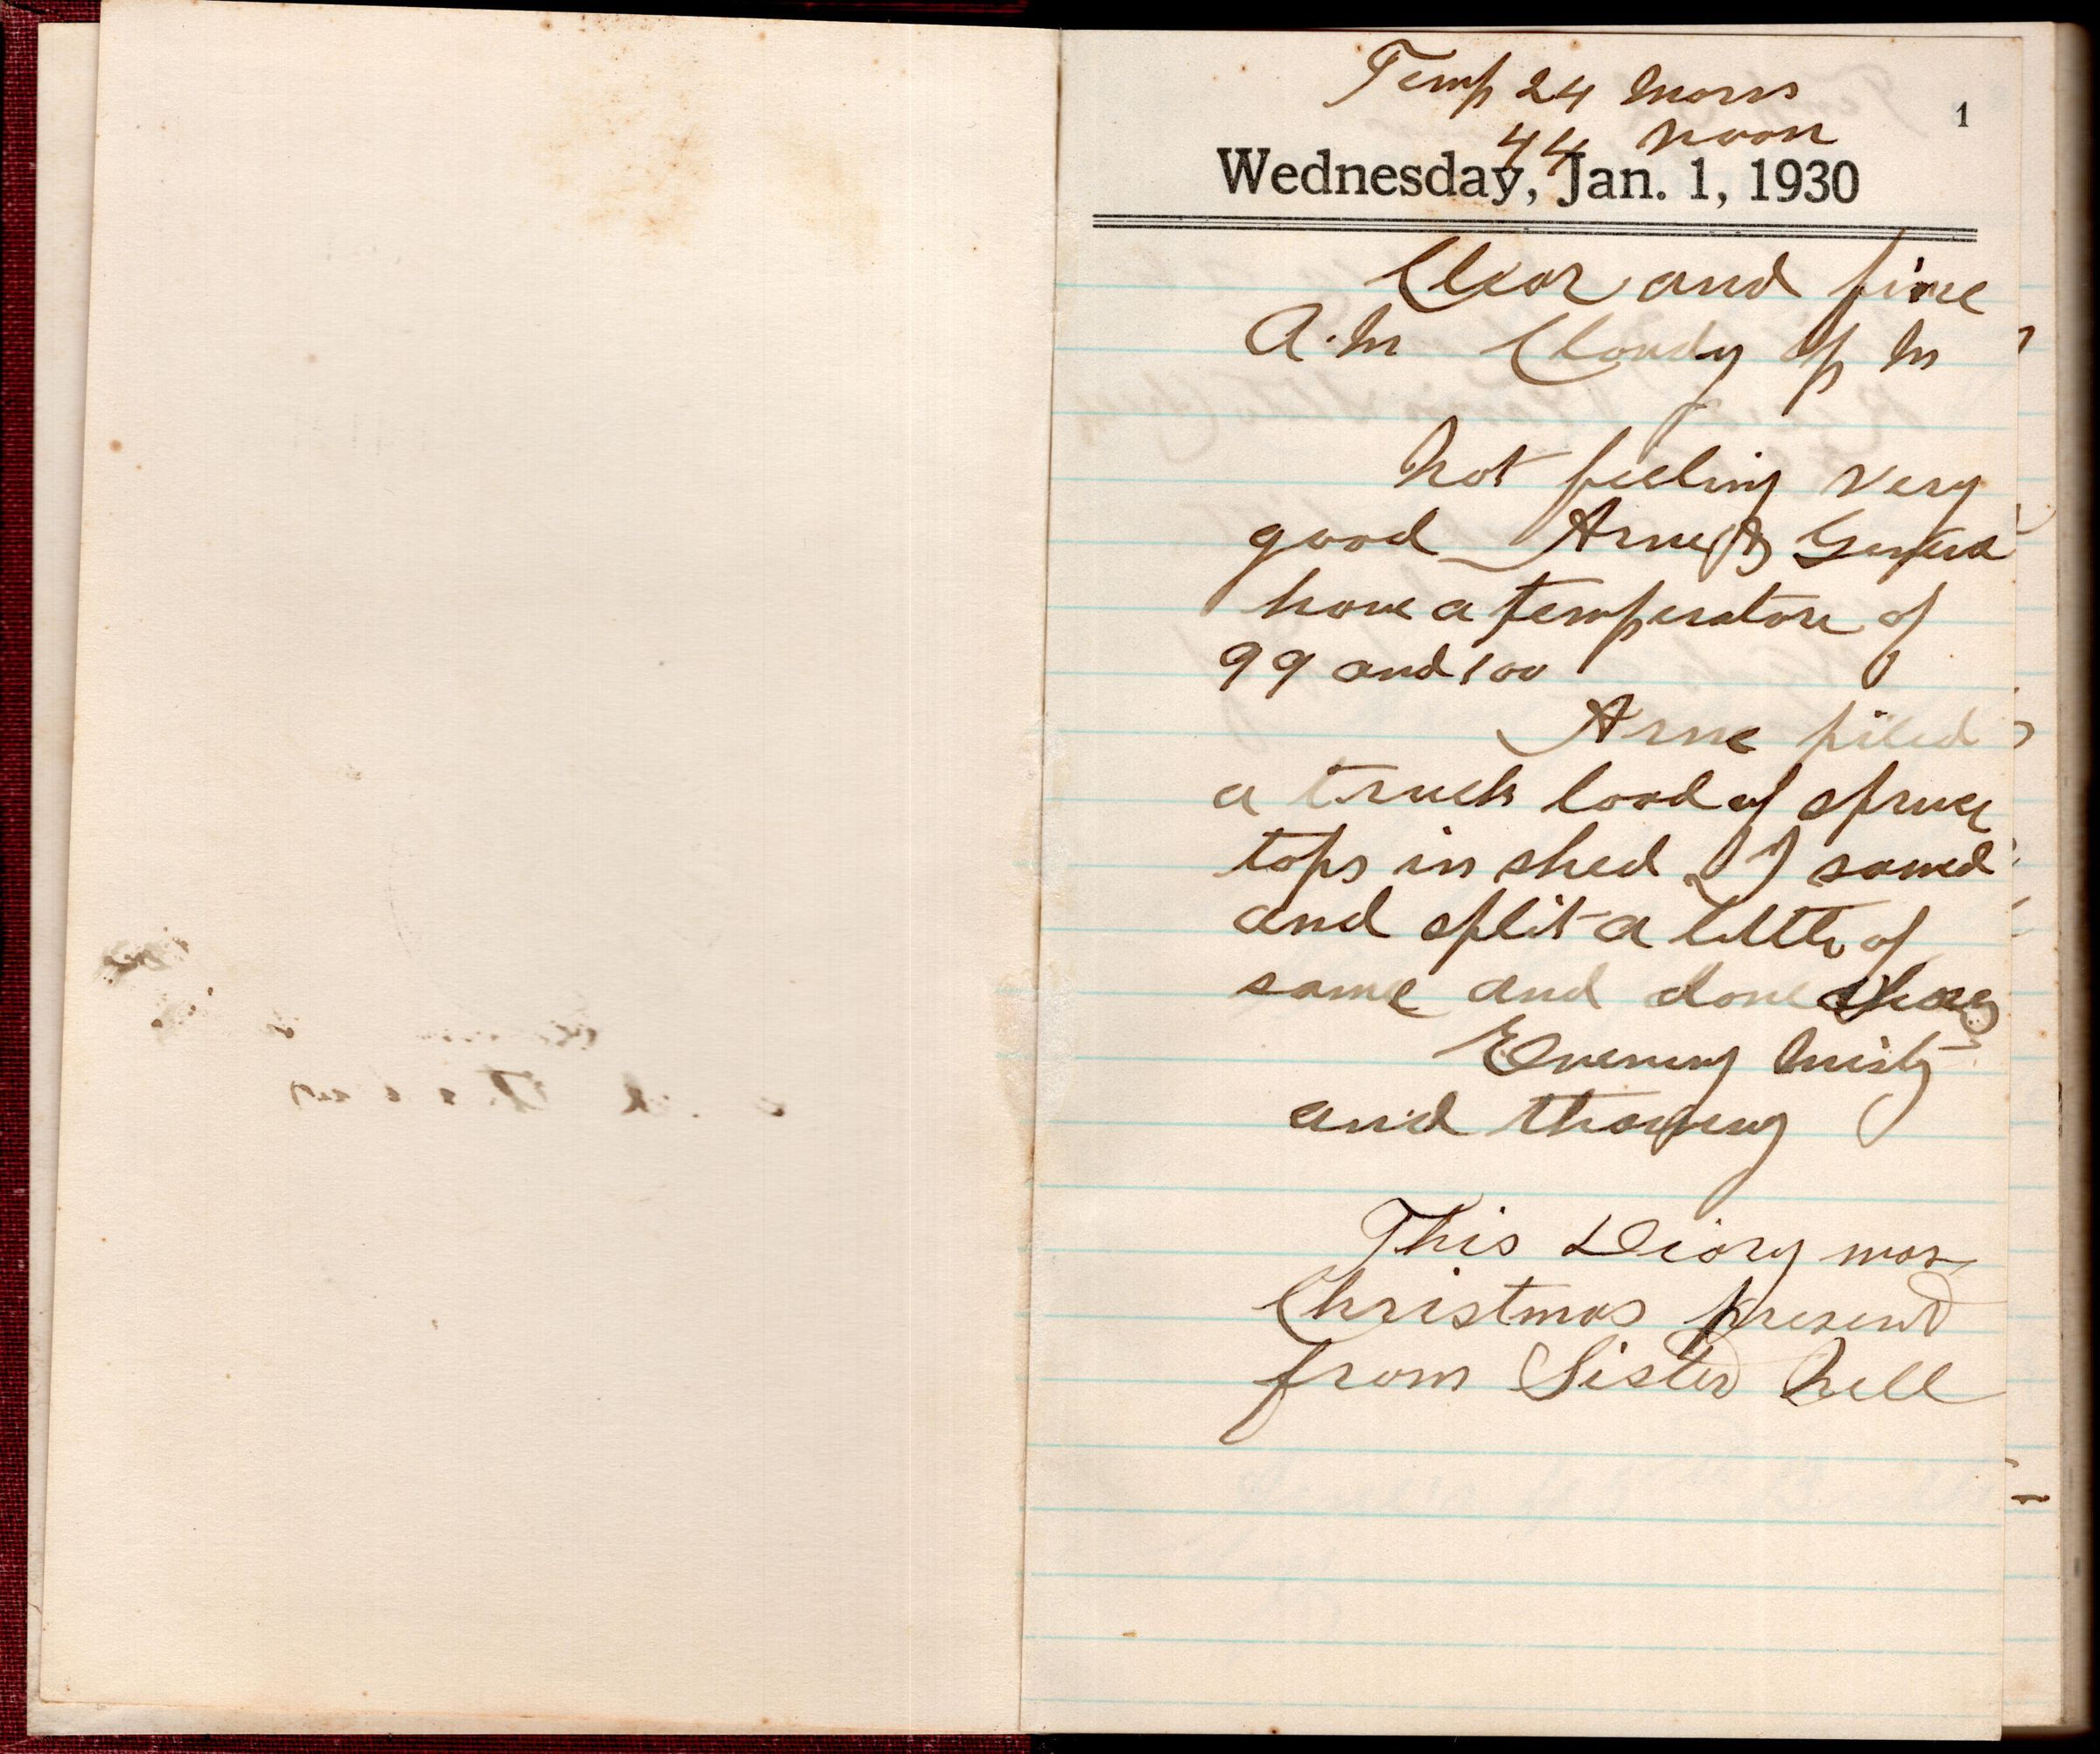 Temp 24 morn
1
44 noon
Wednesday, Jan. 1, 1930
Clear and fine
A.M Cloudy P M
Not feeling very
good Arne &
have a temperature of
99 and 100
Arne piled
a truck load of spruce
tops in shed I sawed
and split a little of
same and done chores
Evening Misty
and thawing
This Diary was
Christmas present
from Sister Nell